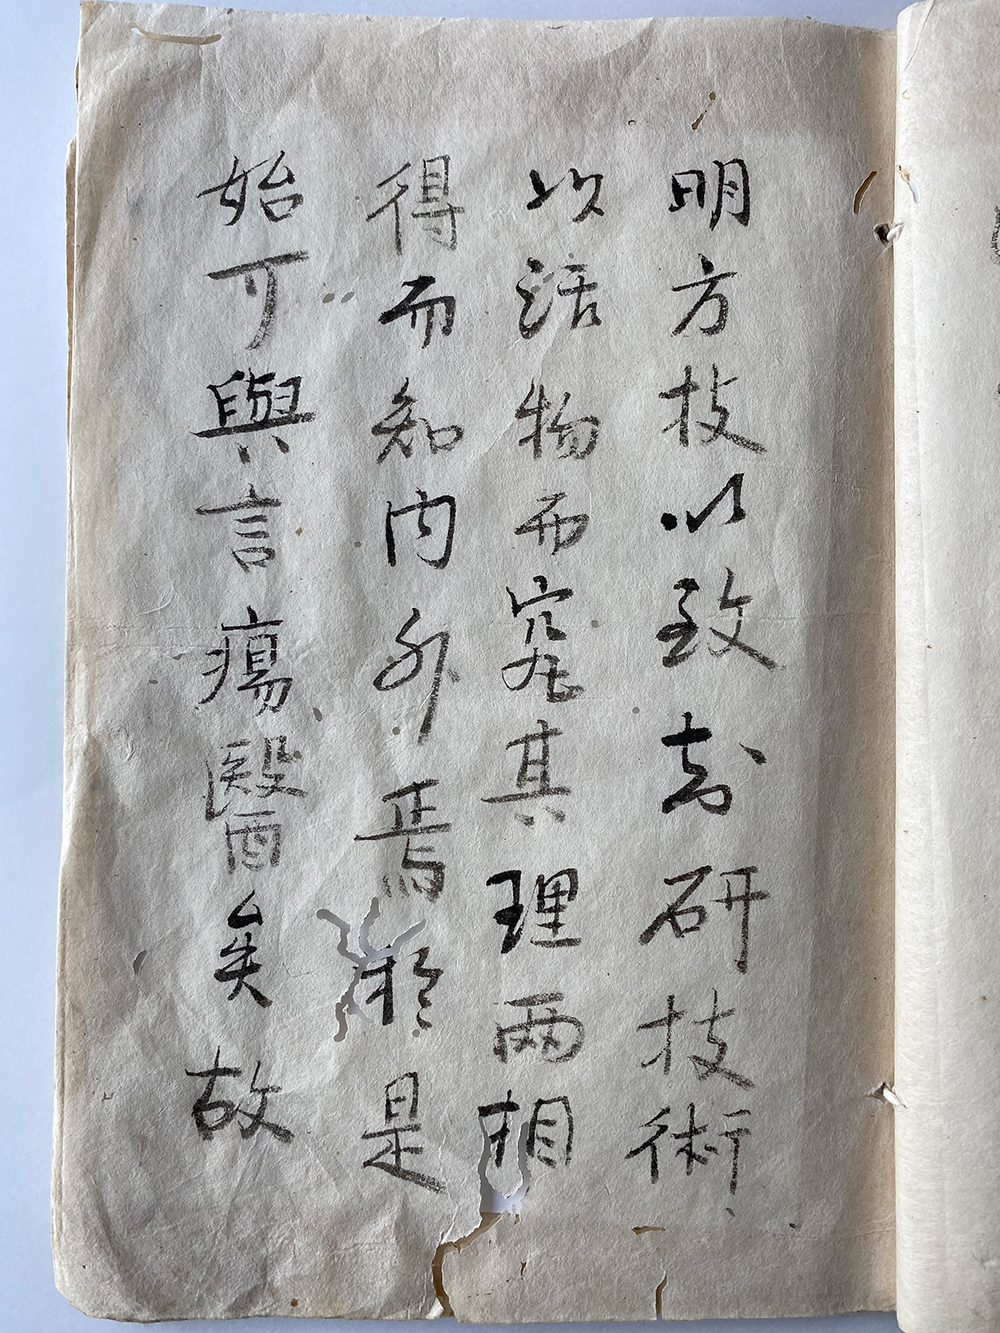 明方技以致研技術
以活物而究其理兩相
得而知内外焉於是
始可與言瘍醫矣故